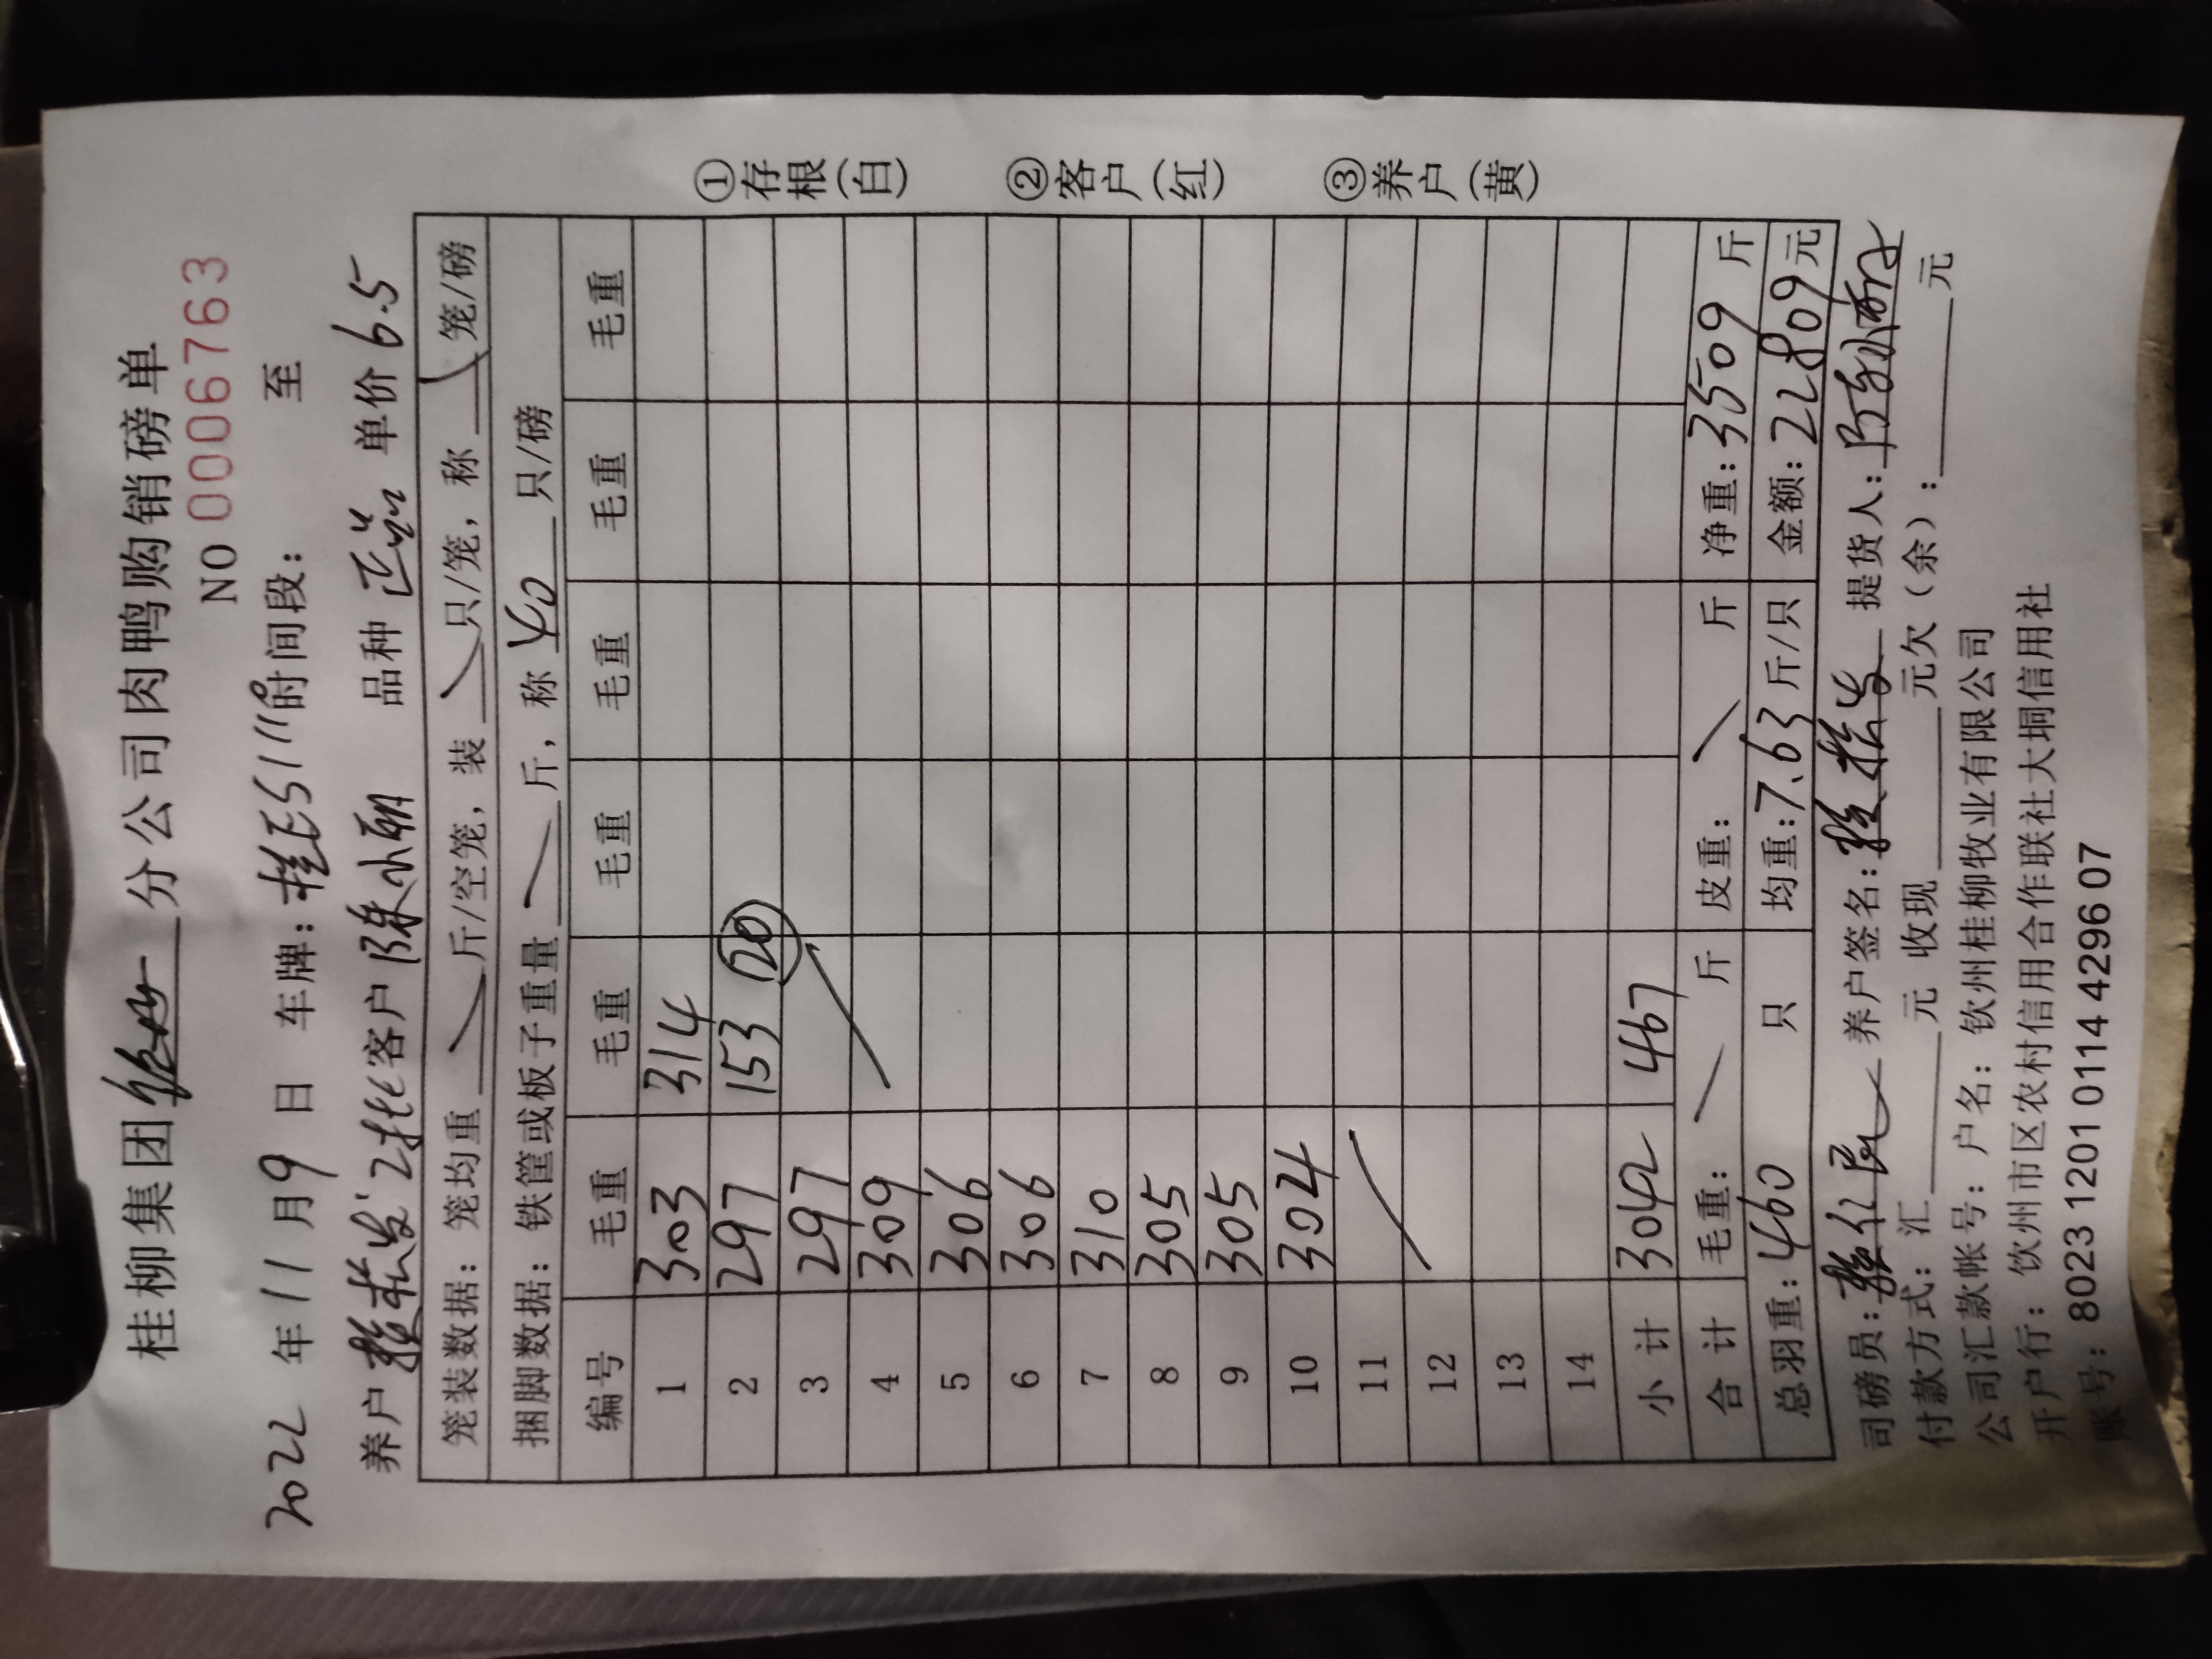 桂柳集团 分公司肉鸭购销磅单
NO 0006763
2022 年 11 月 9 日 车牌: 桂E5111 时间段: 至
养户 客户 陈小丽 品种 单价 6.5
笼装数据: 笼均重 斤/空笼, 装 只/笼, 称 笼/磅
捆脚数据: 铁筐或板子重量 斤, 称 40 只/磅
编号 毛重 毛重 毛重 毛重 毛重 毛重
1 303 314
2 297 153 20
3 297
4 309
5 306
6 306
7 310
8 305
9 305
10 304
11
12
13
14
小计 3042 467
合计 毛重: 斤 皮重: 斤 净重: 3509 斤
总羽重: 460 只 均重: 7.63 斤/只 金额: 22809 元
司磅员: 养户签名: 提货人: 陈小丽
付款方式: 汇 元 收现 元欠(余): 元
公司汇款帐号: 户名: 钦州桂柳牧业有限公司
开户行: 钦州市区农村信用合作联社大垌信用社
账号: 8023 1201 0114 4296 07
①存根(白) ②客户(红) ③养户(黄)